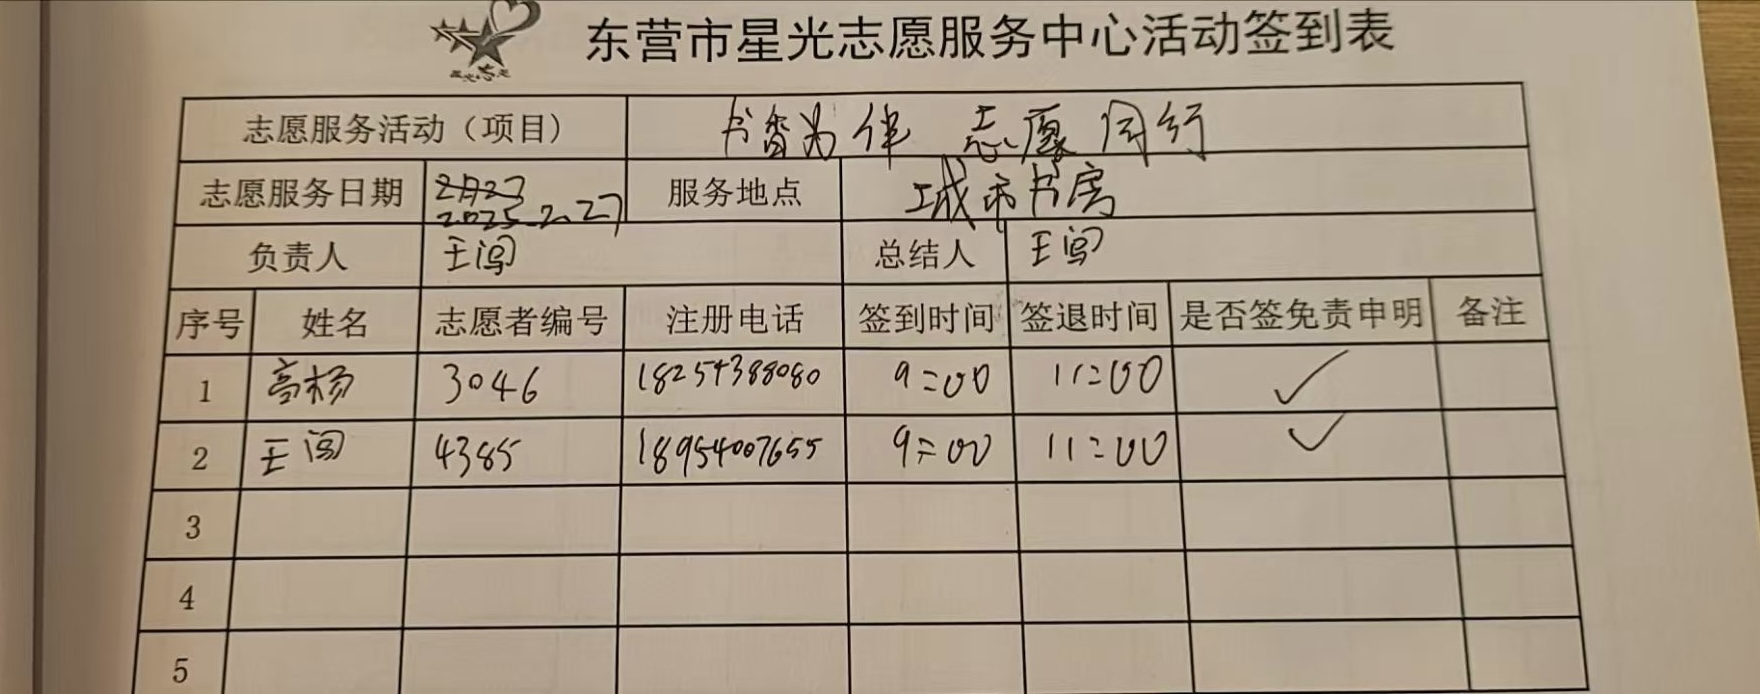 星光志愿
东营市星光志愿服务中心活动签到表
志愿服务活动（项目） 书香为伴 志愿同行
志愿服务日期 2月27 2025.2.27 服务地点 城市书房
负责人 王闯 总结人 王闯
序号 姓名 志愿者编号 注册电话 签到时间 签退时间 是否签免责申明 备注
1 高杨 3046 18254388080 9:00 11:00 ✓
2 王闯 4385 18954007655 9:00 11:00 ✓
3
4
5